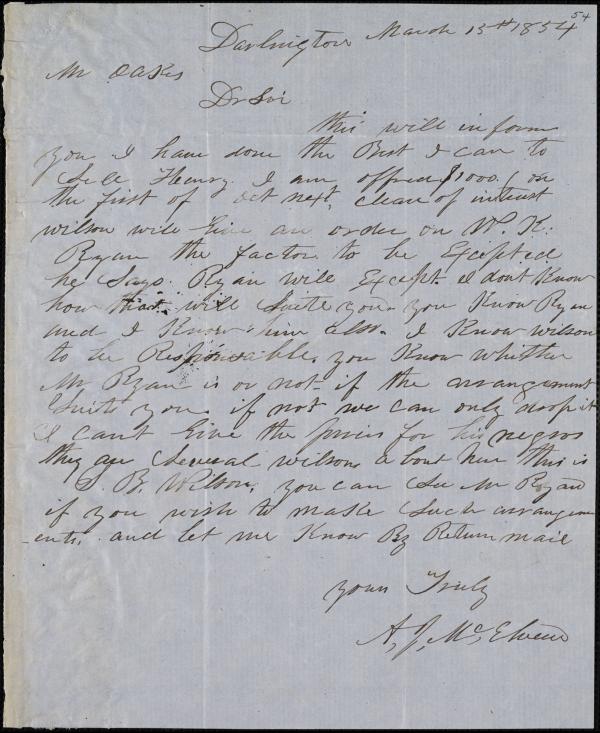 54
Darlington March 13th 1854
Mr Oakes
Dr Sir
this will inform
you I have done the Best I can to
Sell Henry I am offred $1000. / on
the first of Oct next, clear of interest
wilson will Give an order on W. K.
Ryan the factor to be Excepted
he Says Ryan will Except. I dont Know
how that will Suite you. you Know Ryan
and I Know him also. I Know wilson
to be Responsable, you Know whither
Mr Ryan is or not - if the arrangement
Suite you. if not we can only drop it
I cant Give the prices for his negros
they are Several wilsons about here this is
J. B. Wilson, you can See Mr Ryan
if you wish to make Such arrangem
ents. and let me Know By Return mail
yours Truly
A, J, McElveen